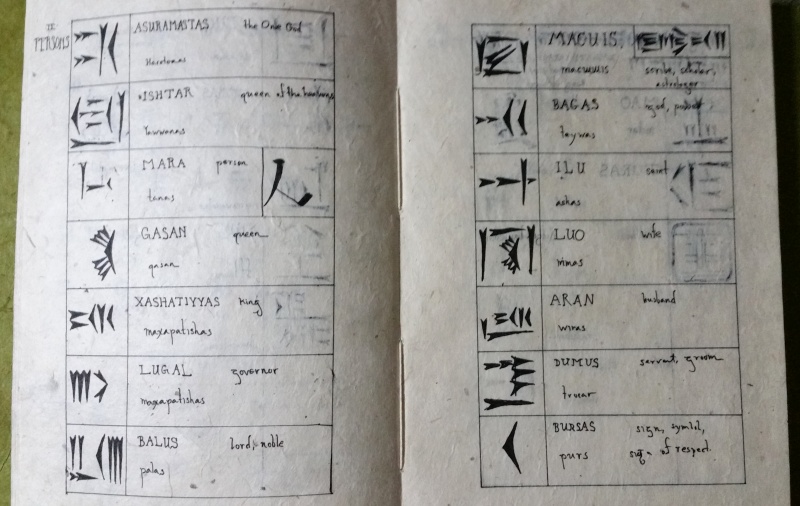 II
PERSONS
ASURAMASTAS the One God
•ISHTAR queen of the heavens
Yawwanas
MARA person 人
tanas
GASAN queen
gasan
XASHATIYYAS King
maxapatishas
LUGAL governor
maxapatishas
BALUS lord, noble
palas
MACUIS
macuuis scribe, scholar,
astrologer
BAGAS god, power
taywas
ILU saint
ashas
LUO wife
mimas
ARAN husband
wiras
DUMUS servant, groom
truear
BURSAS sign, symbol,
purs of respect.